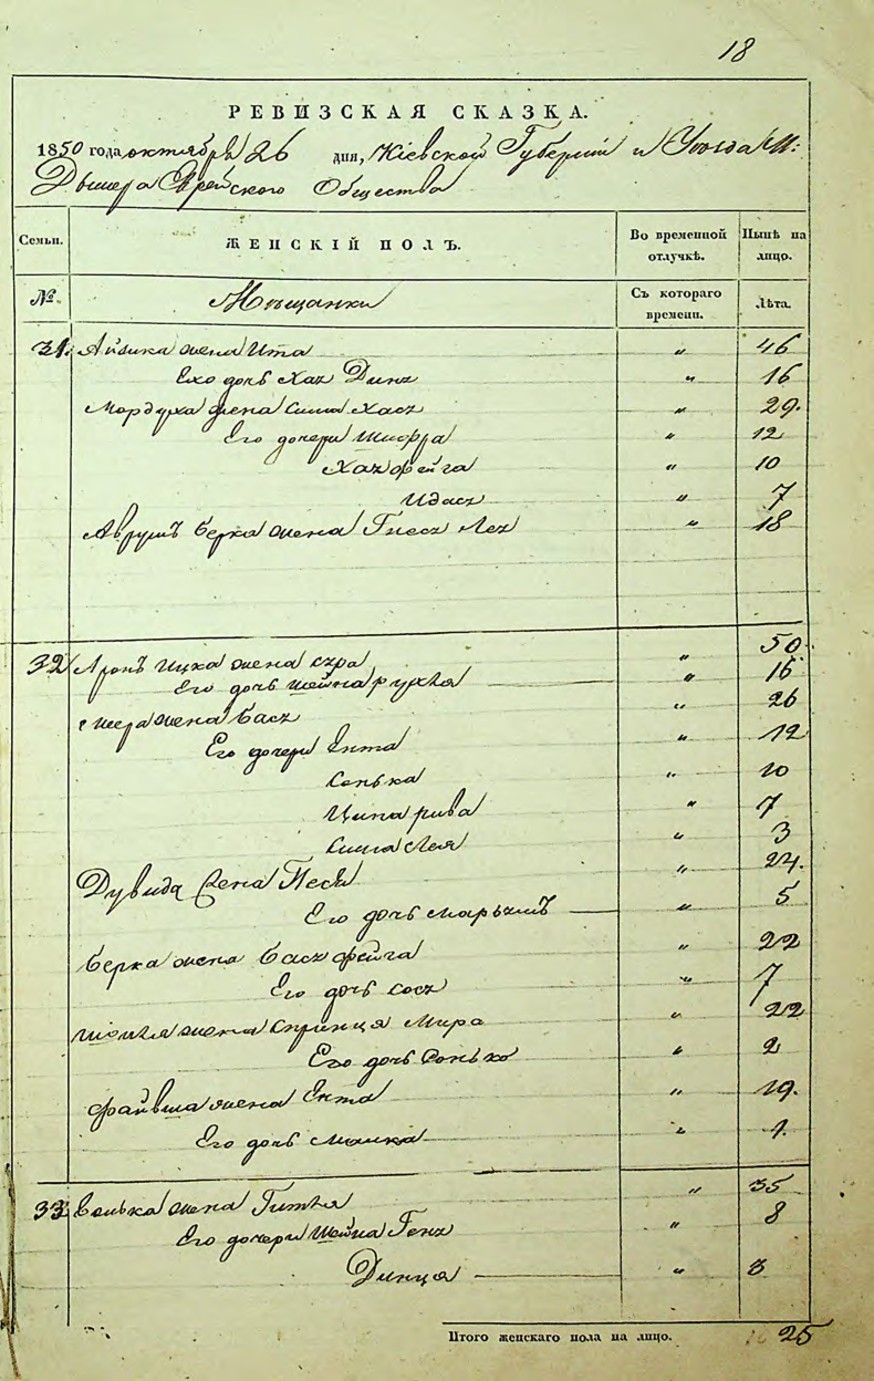 18
РЕВИЗСКАЯ СКАЗКА.
1850 года октября 26 дня, Кіевской Губерніи и Уѣзда М:
Дымера Еврейского Общества
Семьи. ЖЕНСКІЙ ПОЛЪ. Во временной отлучкѣ. Нынѣ на лицо.
№ Мѣщанки Съ котораго времени. Лѣта.
31. Айзика жена Ита " 46
Его дочь Хая Дина " 16
Мордуха жена Сима Хася " 29.
Его дочери Шифра " 12
Хая фейга " 10
Идася " 7
Аврумъ Берка жена Гнеся Лея " 18
32 Аронъ Ицка жена сура " 50
Его дочь шейна рухля " 16
жена Бася " 26
Его дочери Ента " 12
сенька " 10
Ципа рива " 7
сима лея " 3
Дувида жена Песя " 24.
Его дочь марьямъ " 5
Берка жена Бася фейга " 22
Его дочь сося " 7
жена спринця Мира " 22
Его дочь сонько " 2
файвиша жена Ента " 19.
Его дочь малка " 1.
33 Волька жена Гитля " 35
Его дочери Шейна Геня " 8
Динця " 3
Итого женскаго пола на лицо. 25